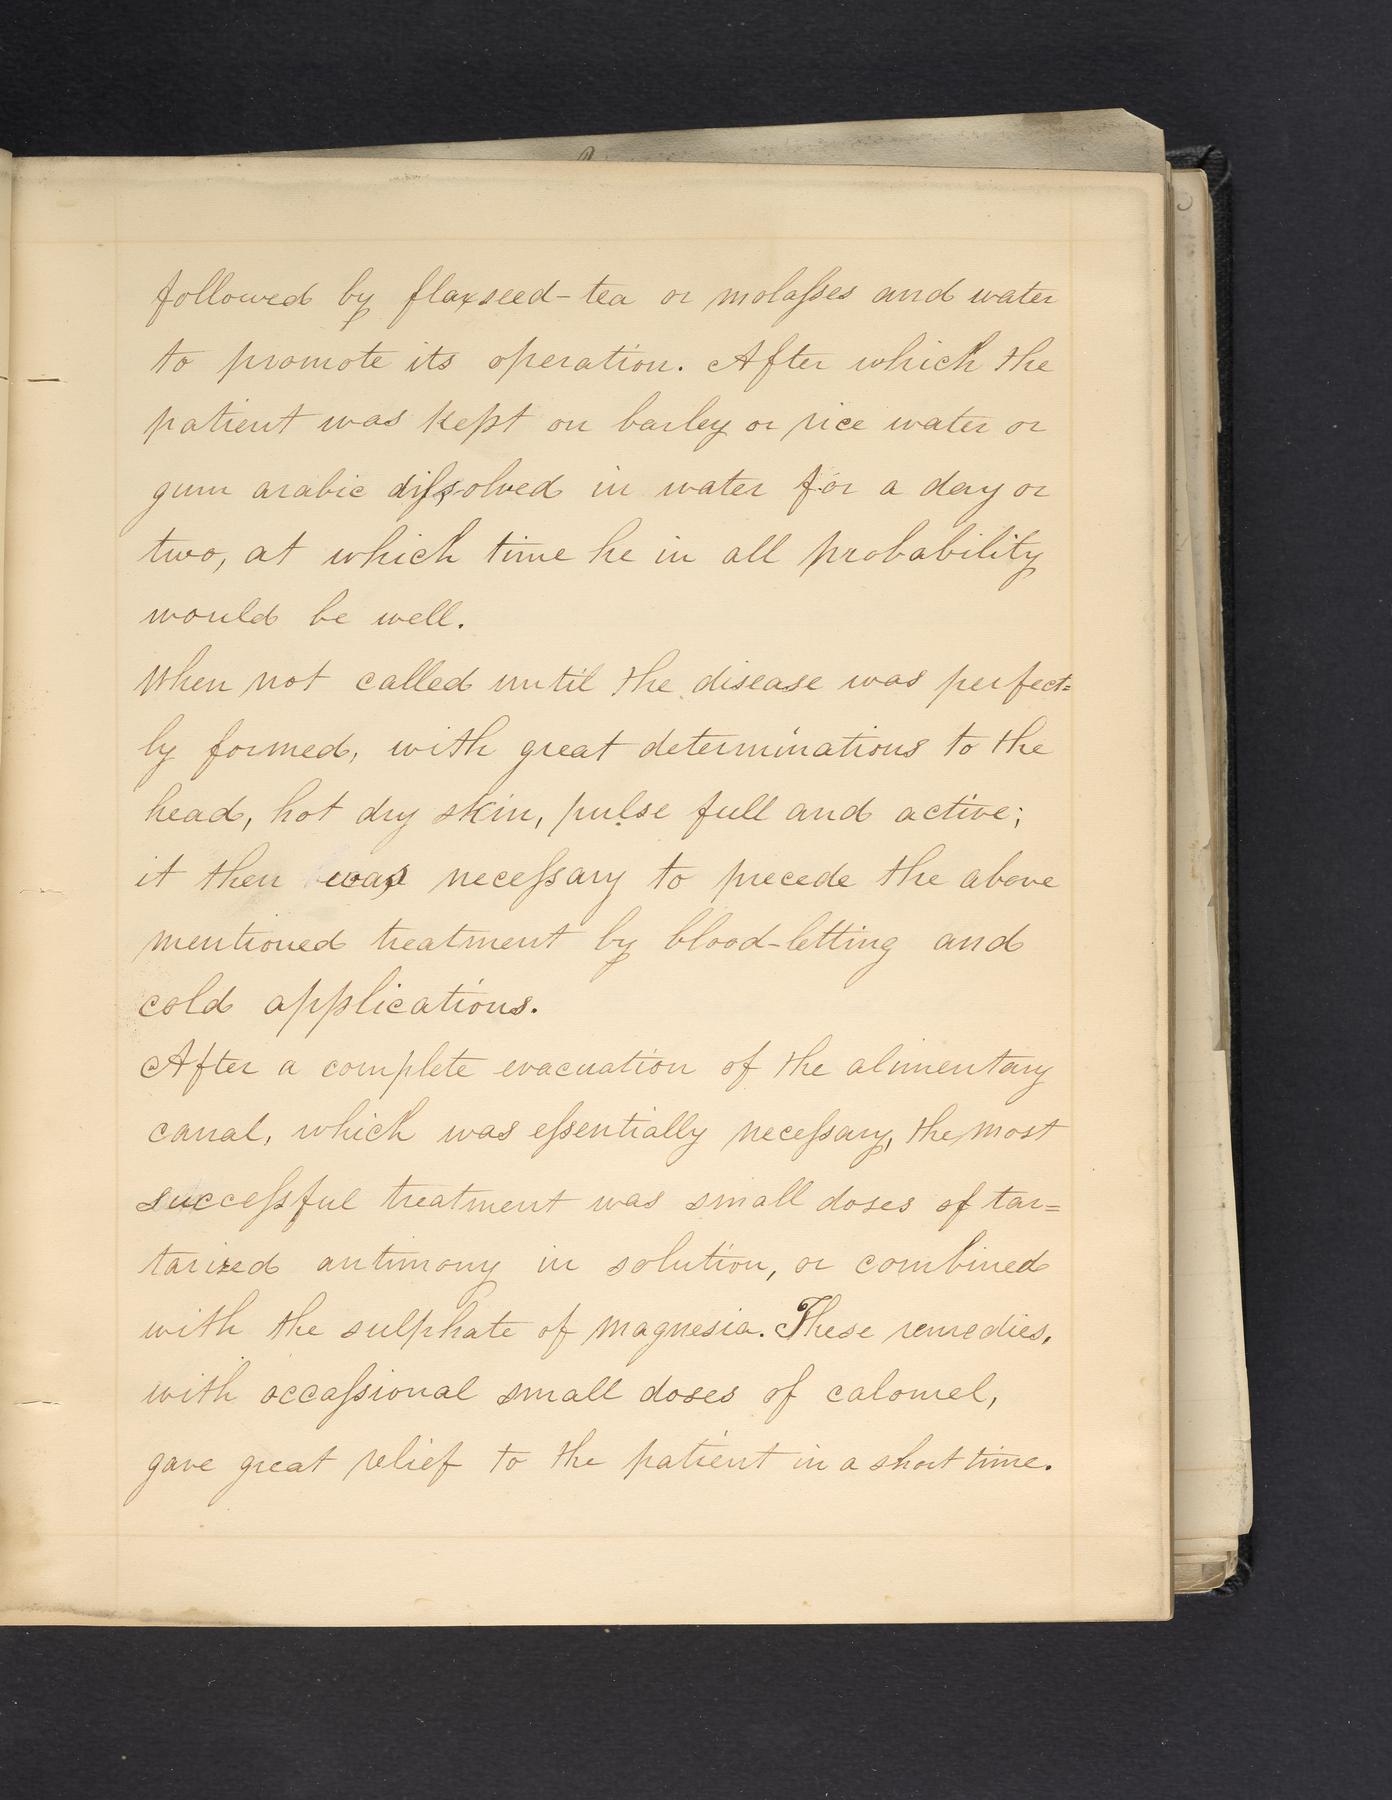 followed by flaxseed-tea or molasses and water
to promote its operation. After which the
patient was kept on barley or rice water or
gum arabic dissolved in water for a day or
two, at which time he in all probability
would be well.
When not called until the disease was perfect=
ly formed, with great determinations to the
head, hot dry skin, pulse full and active;
it then was necessary to precede the above
mentioned treatment by blood-letting and
cold applications.
After a complete evacuation of the alimentary
canal, which was essentially necessary, the most
successful treatment was small doses of tar=
tarized antimony in solution, or combined
with the sulphate of magnesia. These remedies,
with occassional small doses of calomel,
gave great relief to the patient in a short time.